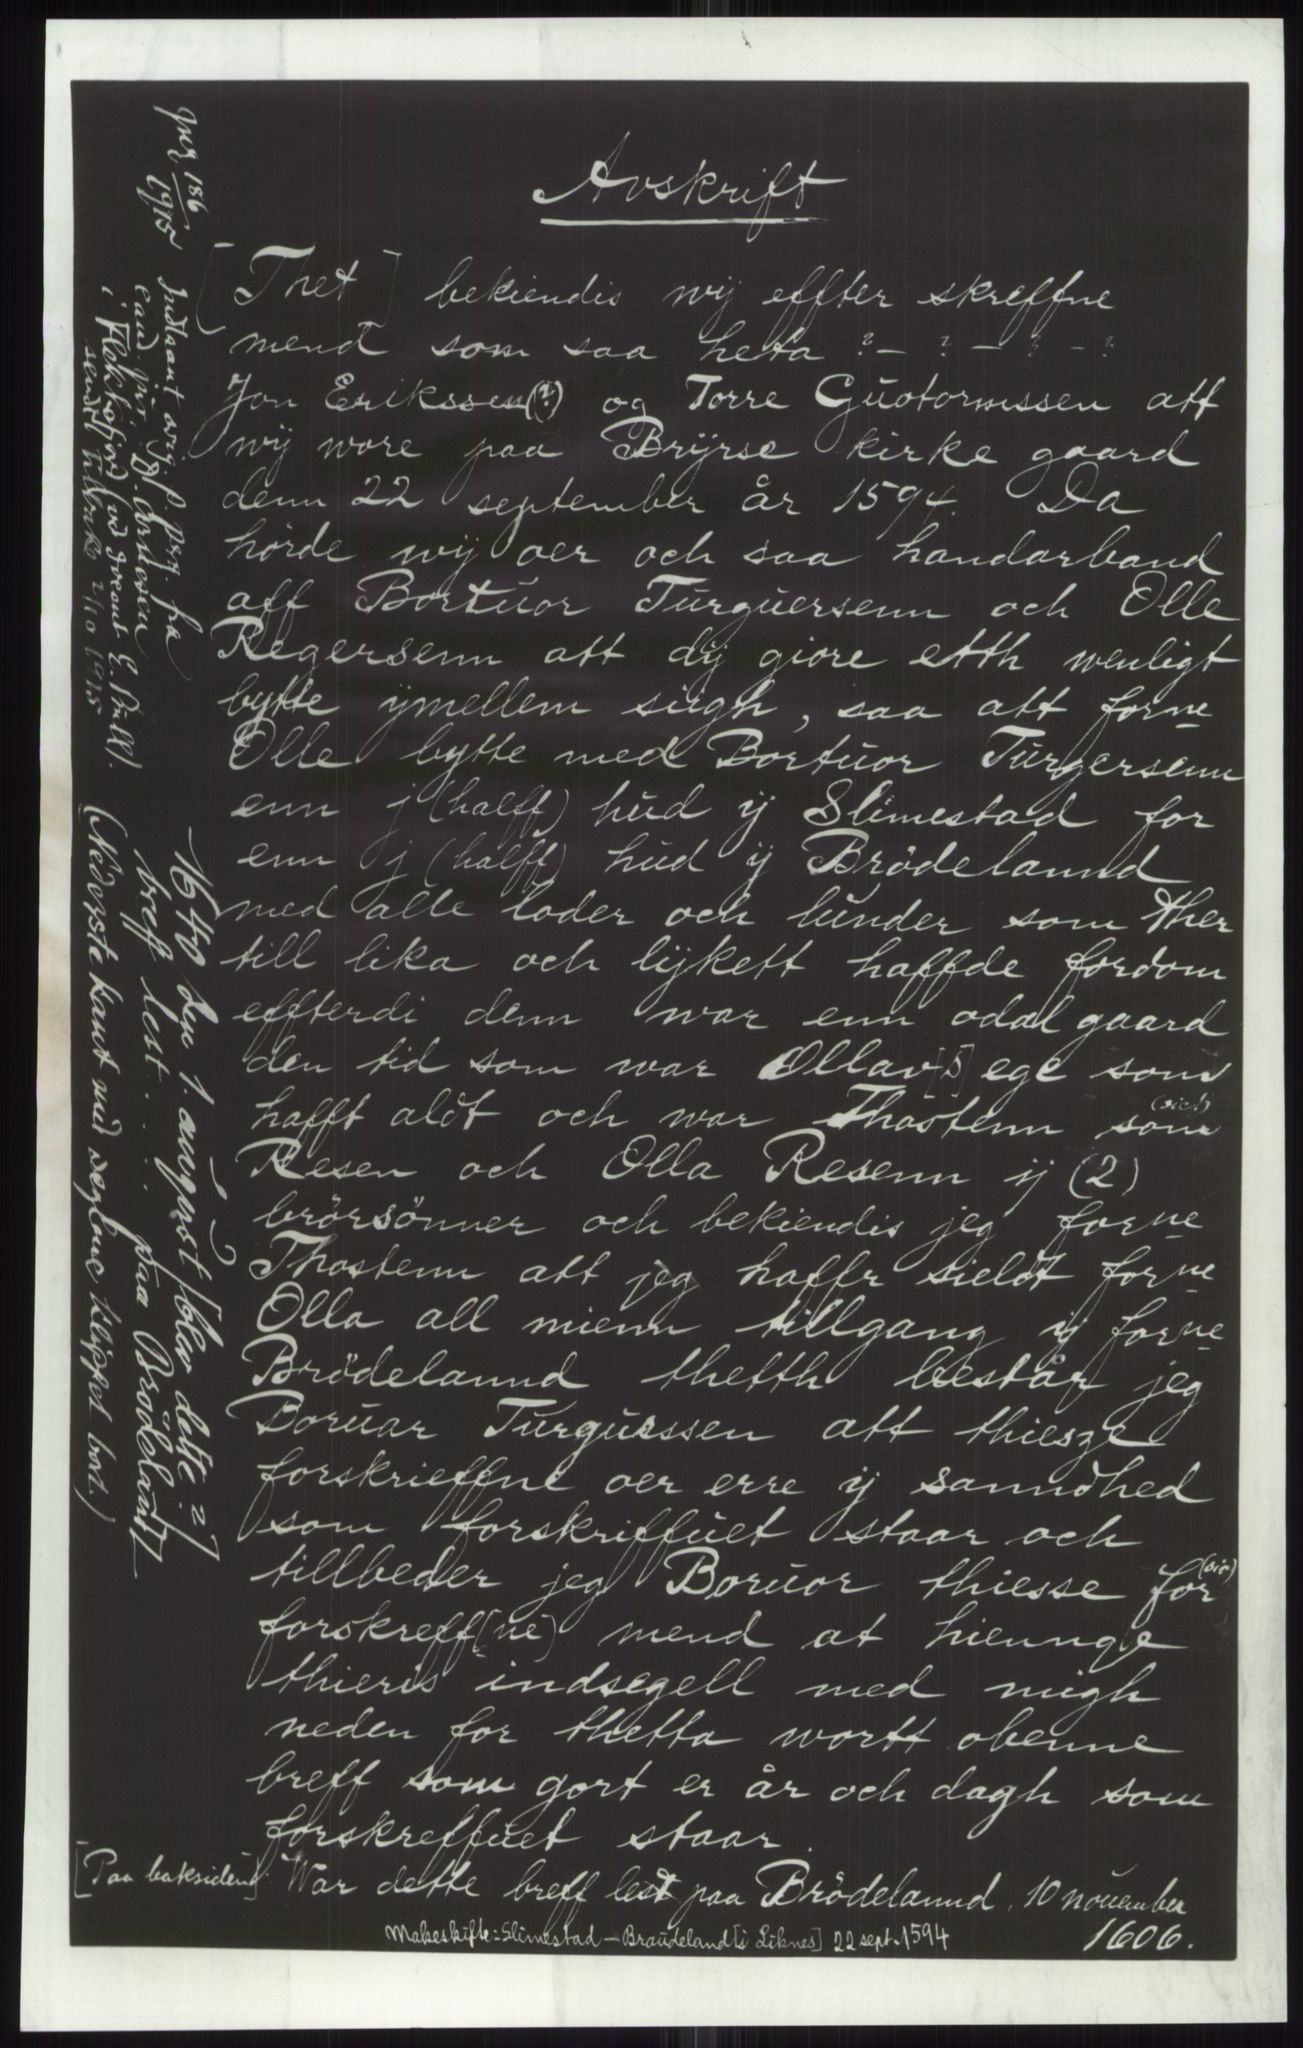 Avskrift
[Thet] bekiendis wij effter skreffne
mend som saa heta ? – ? – ? – ?
Jon Erikssen(?) og Torre Guotormssen att
wij wore paa Brÿrse kirke gaard
denn 22 september år 1594. Da
hörde wij oer och saa handarband
aff Bortuor Turguersenn och Olle
Regersenn att dij giore etth wenligt
bytte ÿmellem siigh, saa att forne
Olle bytte med Bortuor Turgersenn
enn j (halff) hud ÿ Slimestad for
enn j (halff) hud ÿ Brödelannd
med alle loder och lunder som ther
till lika och lijkett haffde fordom
effterdi denn war enn odal gaard
den tid som war Ollav[s] ege som
hafft aldt och war Thostenn som (sic!)
Resen och Olla Resenn ij (2)
brörsönner och bekiendis jeg forne
Thostenn att jeg haffr sieldt forne
Olla all mienn tillgang ij forne
Brödelannd thetth består jeg
Boruar Turgussen att thiesze
forskrieffne oer erre ÿ sanndhed
som forskriffuet staar och
tillbeder jeg Boruor thiesse for (sic)
forskreff[ne] mend at hiennge
thieris indsegell med migh
neden for thetta wortt obenne
breff som gort er år och dagh som
forskreffuet staar.
[Paa baksiden] War dette breff lest paa Brödelannd. 10 nouember
1606.
Makeskifte: Slimestad – Braudeland [i Liknes] 22 sept. 1594
1640 den 1. augusti [blev dette?]
breff lest . . . . paa Brödelandt
(Nederste kant med seglene klippet bort.)
186
1915
Indlaant orig. prg. fra
cand. jur.
i Flekkefjord (ved E. Bull).
sendt tilbake 2/10 1915